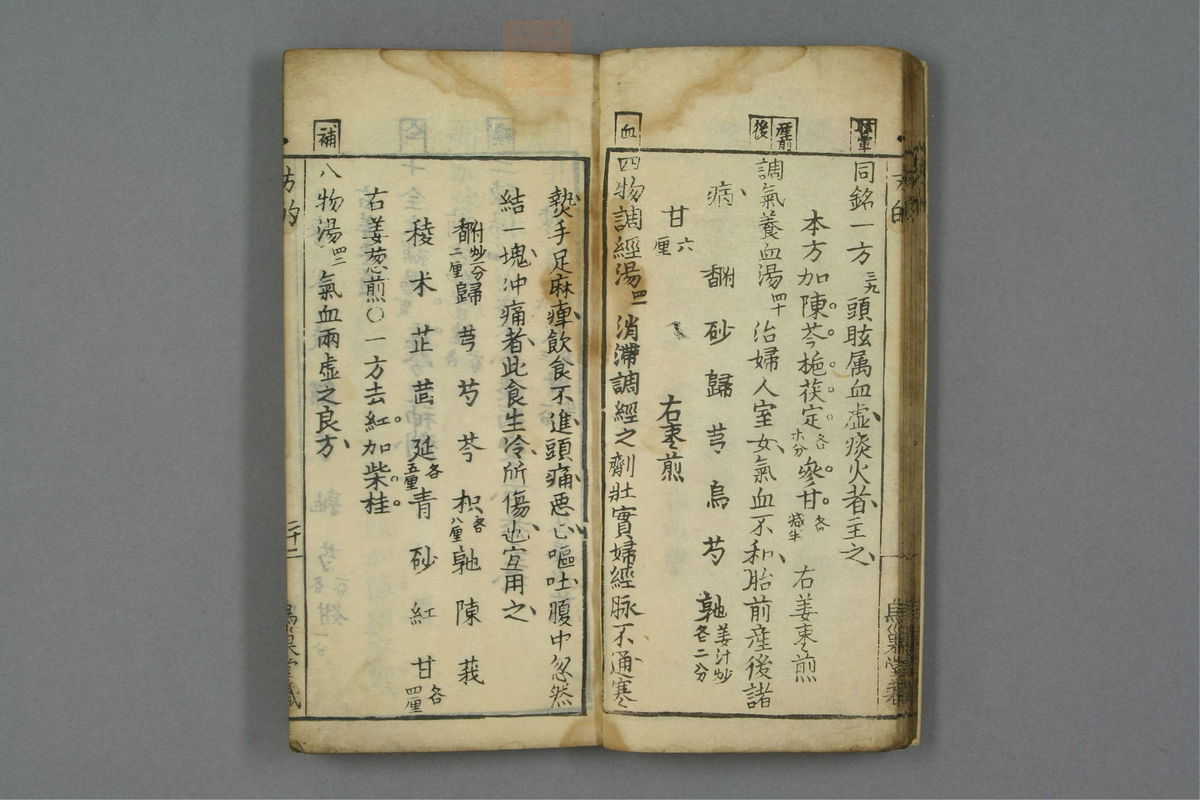 同銘一方 三九 頭眩属血虛痰火者主之
本方加陳芩梔茯定 各 參甘 各減半 右姜枣煎
產前
後
調氣養血湯 四十 治婦人室女氣血不和胎前產後諸
病 砂歸芎烏芍 姜汁炒各二分
甘 六厘 右枣煎
血
四物調經湯 消滯調經之劑壯實婦經脉不通寒
熱手足麻痺飲食不進頭痛惡心嘔吐腹中忽然
結一塊冲痛者此食生冷所傷也宜用之
歸芎芍芩枳 各八厘 陳莪
稜朮芷茴延 各五厘 青砂紅甘 各四厘
右姜葱煎〇一方去紅加柴桂
補
八物湯 四二 氣血兩虛之良方
方的
二十一